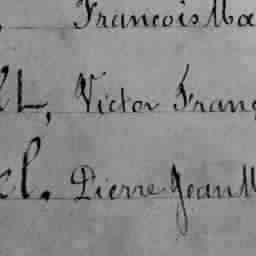 François Ma
lt, Victor Franç
el. Pierre Jean M